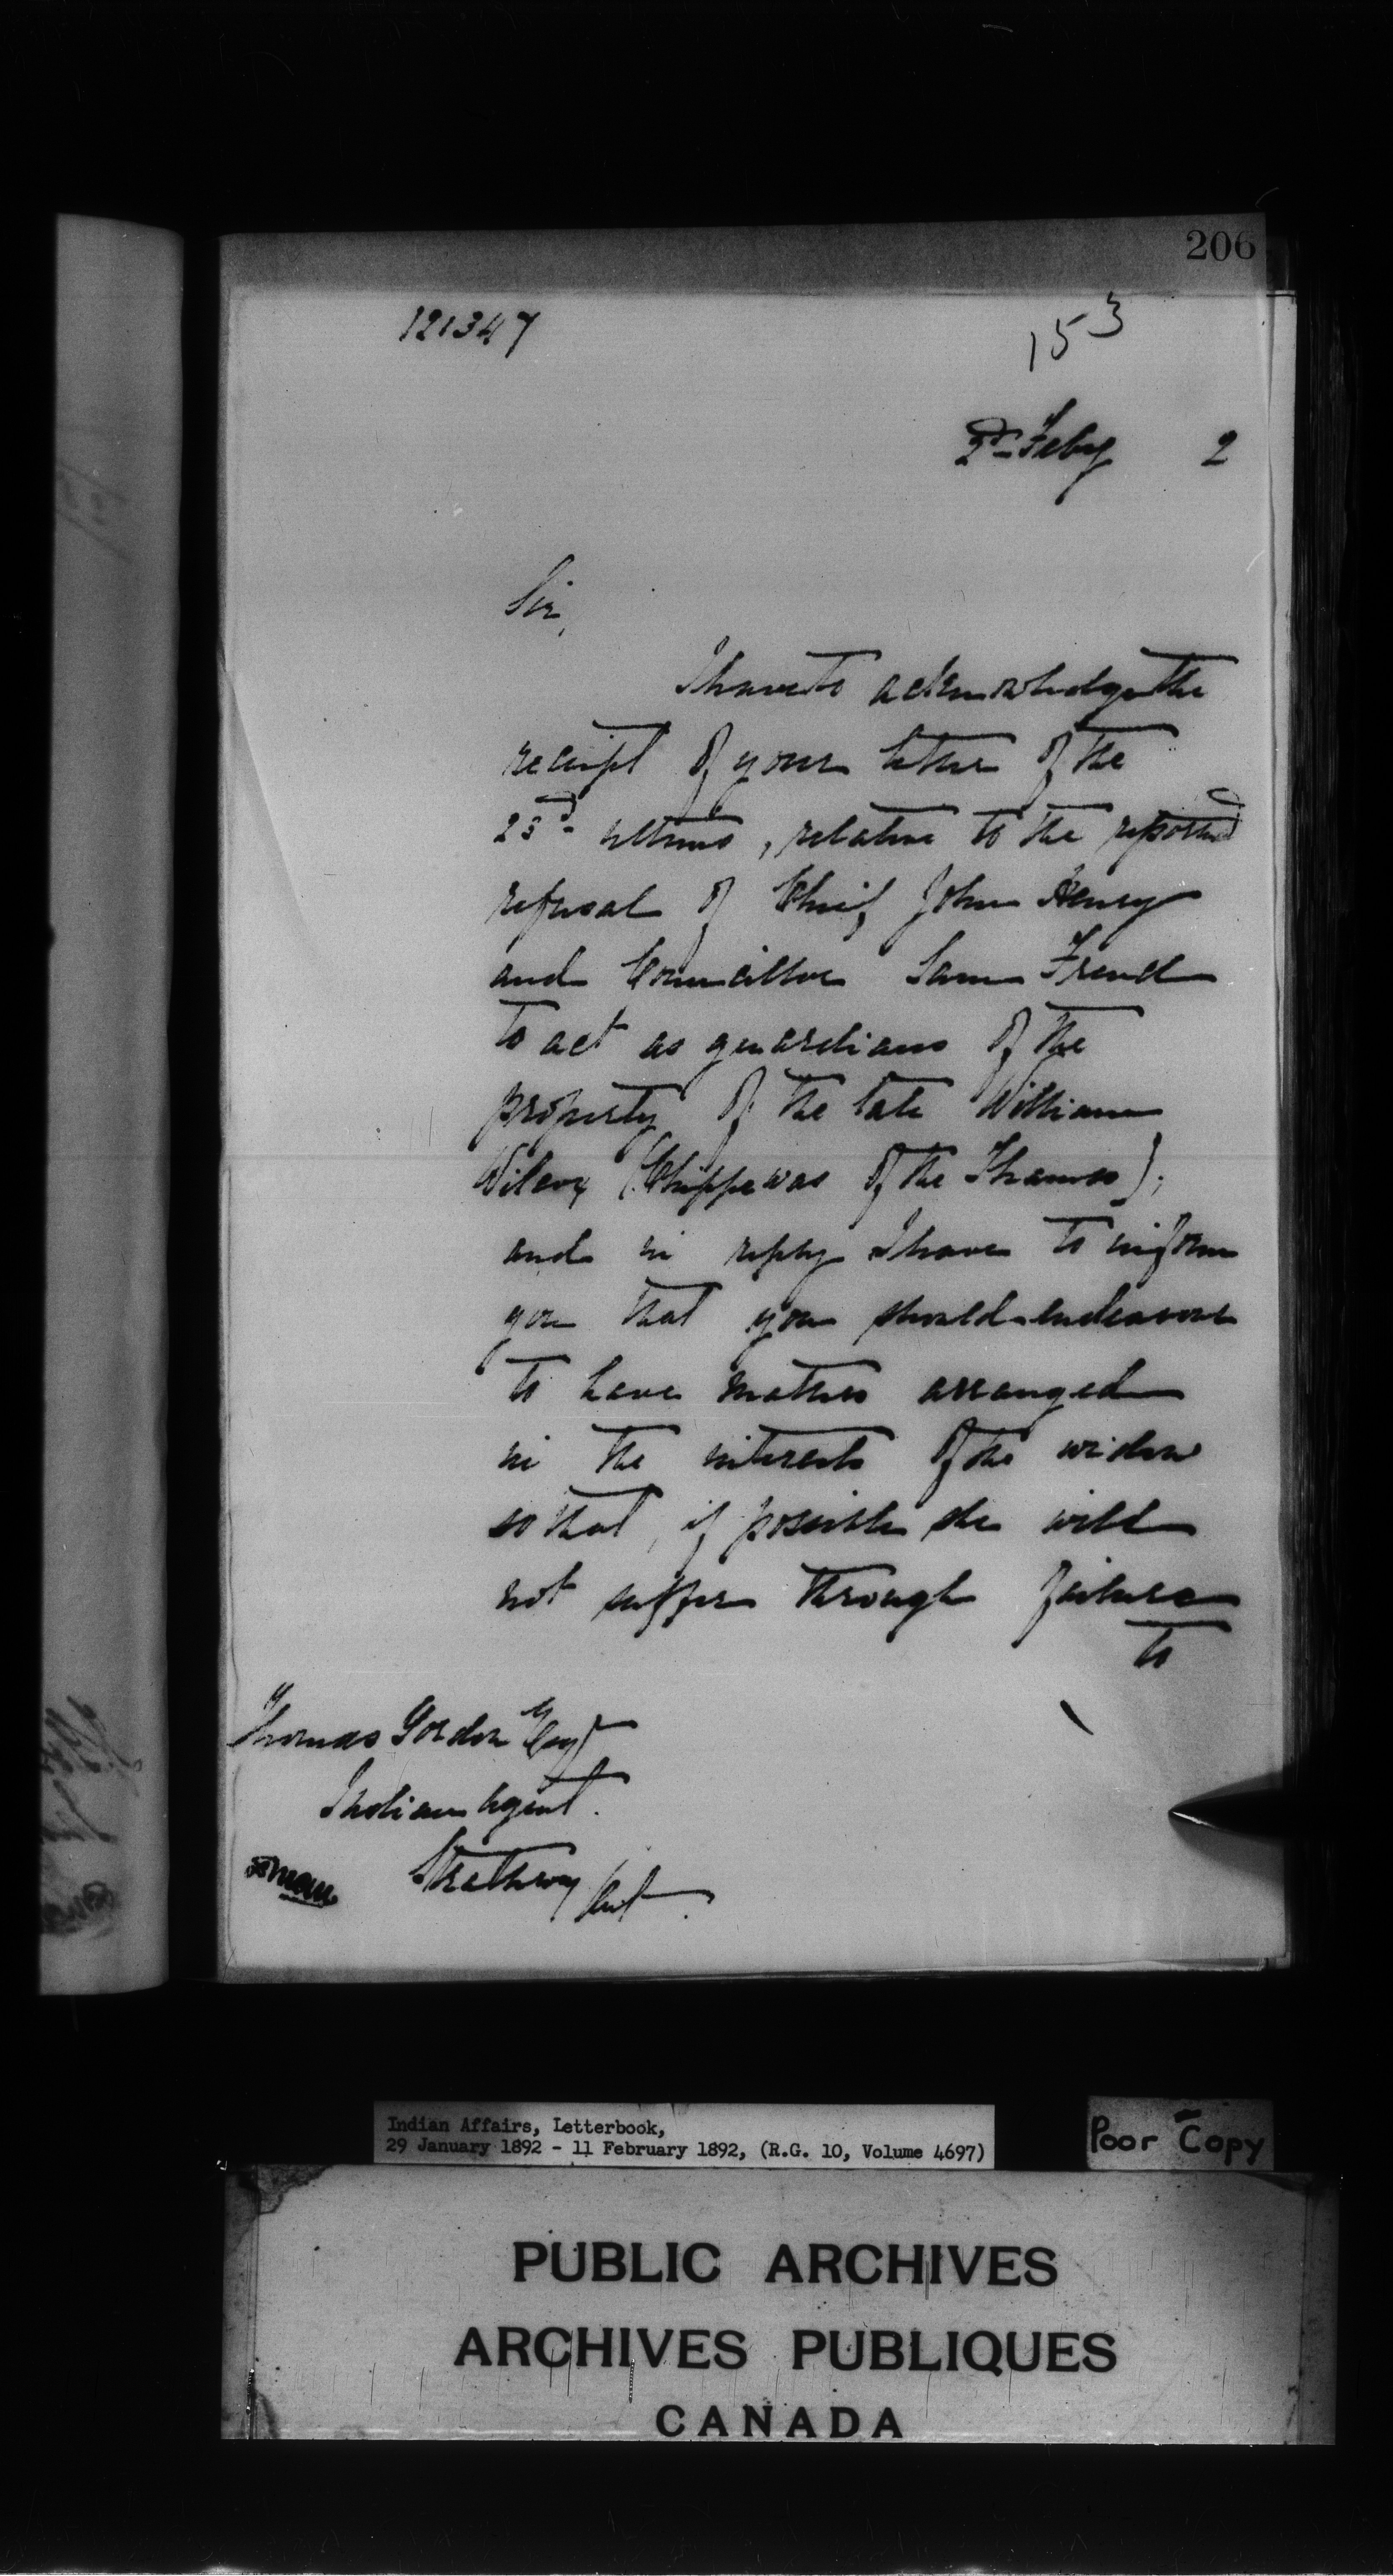 206
121347
153
2nd Feby 2
Sir,
I have to acknowledge the
receipt of your letter of the
23rd ultimo, relative to the reported
refusal of Chief John Henry
and Councillor Sam French
to act as guardians of the
property of the late William
(Chippewas of the Thames);
and in reply I have to inform
you that you should endeavour
to have matters arranged
in the interests of the widow
so that, if possible she will
not suffer through failure
to
Thomas Gordon Esqr
Indian Agent.
Strathroy Ont.
Indian Affairs, Letterbook,
29 January 1892 - 11 February 1892, (R.G. 10, Volume 4697)
Poor Copy
PUBLIC ARCHIVES
ARCHIVES PUBLIQUES
CANADA